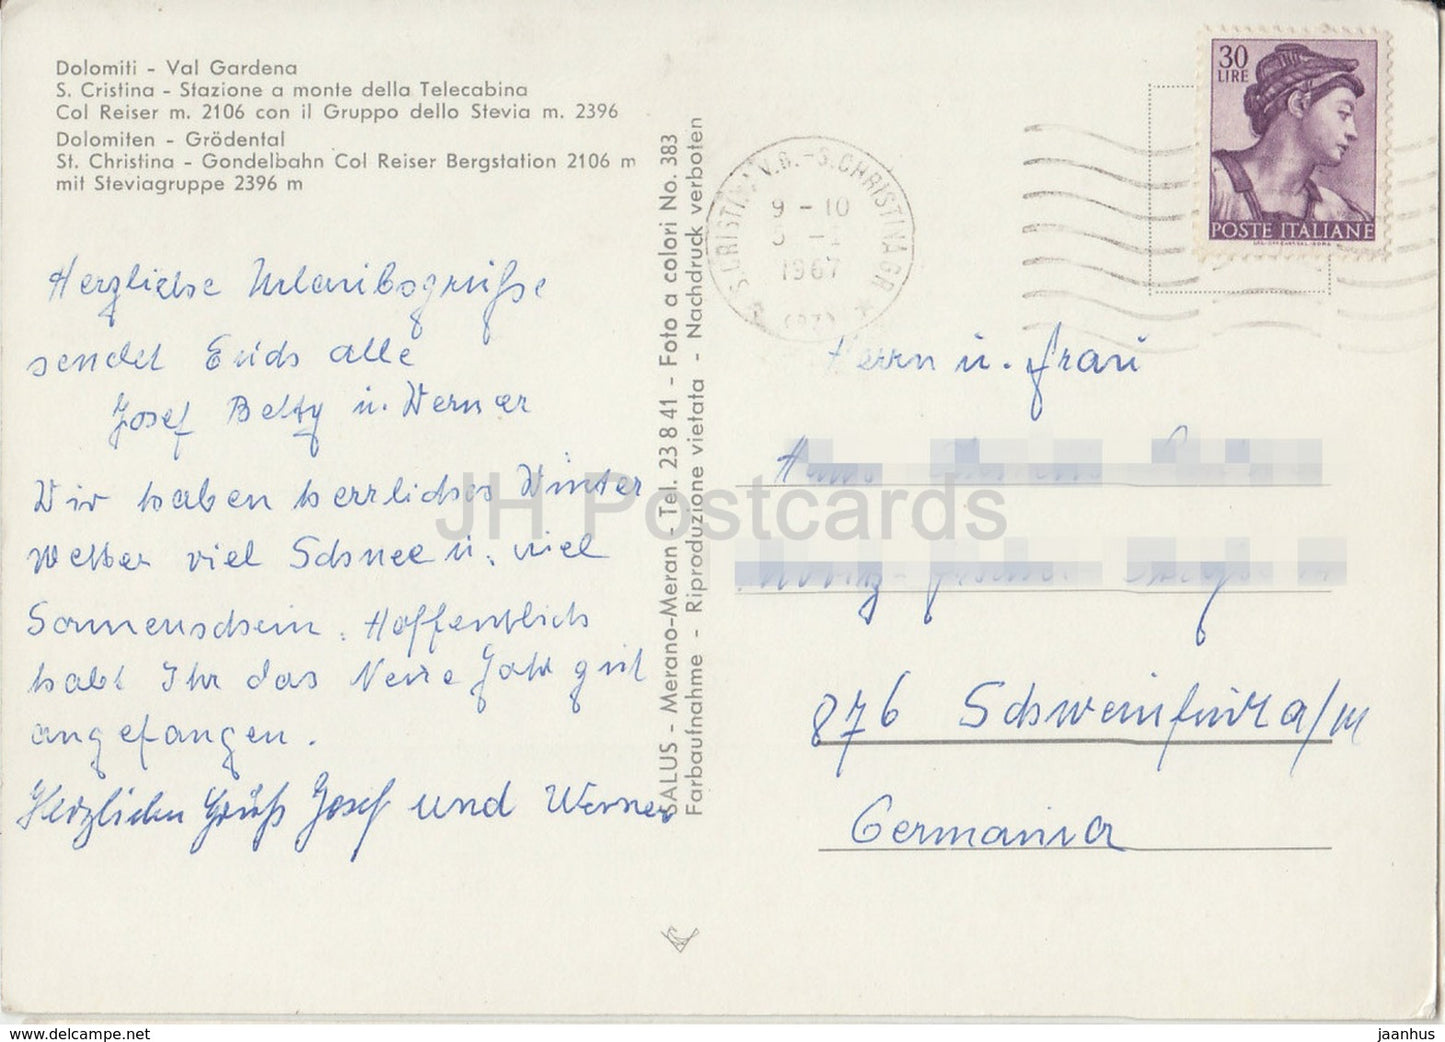 Dolomiti - Val Gardena
S. Cristina - Stazione a monte della Telecabina
Col Reiser m. 2106 con il Gruppo dello Stevia m. 2396
Dolomiten - Grödental
St. Christina - Gondelbahn Col Reiser Bergstation 2106 m
mit Steviagruppe 2396 m
Herzliche Urlaubsgrüße
sendet Euch alle
Josef Betty u. Werner
Wir haben herrliches Winter
Wetter viel Schnee u. viel
Sonnenschein. Hoffentlich
habt Ihr das Neue Jahr gut
angefangen.
Herzlichen Gruß Josef und Werner
SALUS - Merano-Meran - Tel. 23 8 41 - Foto a colori No. 383
Farbaufnahme - Riproduzione vietata - Nachdruck verboten
S.CRISTINA V.G.-S.CHRISTINA GR
9 - 10
1967
30
LIRE
POSTE ITALIANE
Herrn u. Frau
876 Schweinfurt a/M
Germania
JH Postcards
www.delcampe.net
jaanhus